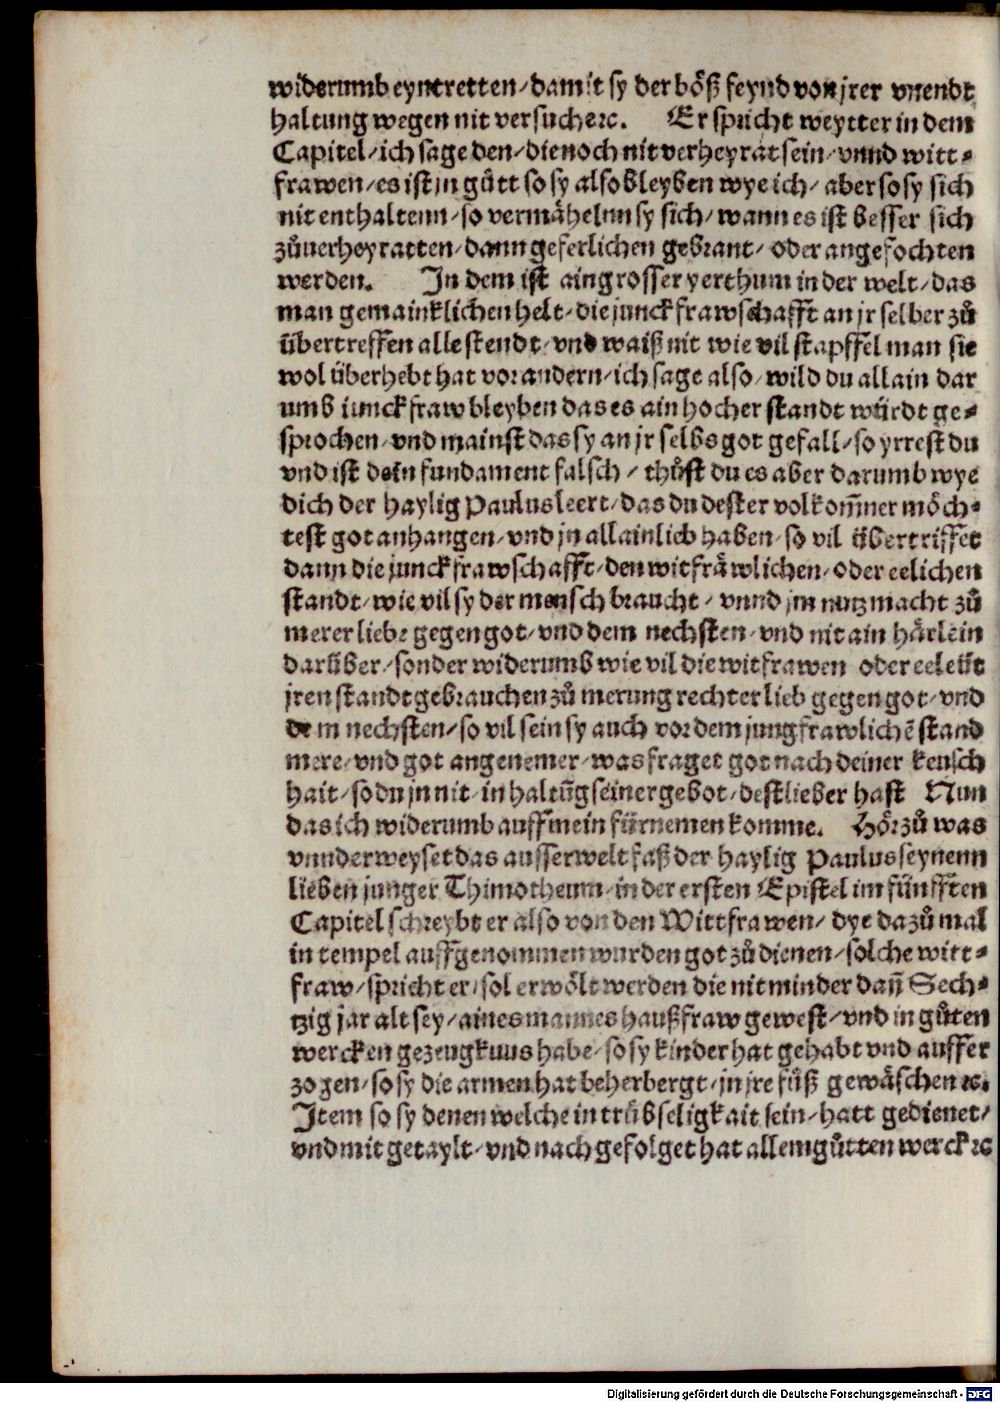 widerumb eyntretten/ damit sy der böß feynd von jrer vnendt
haltung wegen nit versuche ꝛc. Er spricht weytter in dem
Capitel/ ich sage den/ die noch nit verheyrat sein/ vnnd witt⸗
frawen/ es ist jn gůtt so sy also bleyben wye ich/ aber so sy sich
nit enthaltenn/ so vermähelnn sy sich/ wann es ist besser sich
zůuerheyratten/ dann geferlichen gebrant/ oder angefochten
werden. In dem ist ain grosser yerthum in der welt/ das
man gemainklichen helt/ die junckfrawschafft an jr selber zů
übertreffen alle stendt/ vnd waiß nit wie vil stapffel man sie
wol überhebt hat vor andern/ ich sage also/ wild du allain dar
umb junckfraw bleyben das es ain hocher standt würdt ge⸗
sprochen/ vnd mainst das sy an jr selbs got gefall/ so yrrest du
vnd ist dein fundament falsch/ thůst du es aber darumb wye
dich der haylig Paulus leert/ das du dester volkom̃ner möch⸗
test got anhangen/ vnd jn allainlich haben/ so vil übertriffet
dann die junckfrawschafft/ den witfräwlichen/ oder eelichen
standt/ wie vil sy der mensch braucht/ vnnd jm nutz macht zů
merer liebe gegen got/ vnd dem nechsten/ vnd nit ain härlein
darüber/ sonder widerumb wie vil die witfrawen oder eeleüt
jren standt gebrauchen zů merung rechter lieb gegen got/ vnd
dem nechsten/ so vil sein sy auch vor dem jungfrawlichē stand
mere/ vnd got angenemer/ was fraget got nach deiner keusch
hait/ so du jn nit/ in haltũg seiner gebot/ destlieber hast Nun
das ich widerumb auff mein fürnemen komme. Hör zů was
vnnderweyset das ausserwelt faß der haylig Paulus seynenn
lieben junger Thimotheum/ in der ersten Epistel im fünfften
Capitel schreybt er also von den Wittfrawen/ dye dazůmal
in tempel auffgenommen wurden got zů dienen/ solche witt⸗
fraw/ spricht er/ sol erwölt werden die nit minder dañ Sech⸗
tzig jar alt sey/ aines mannes haußfraw gewest/ vnd in gůten
wercken gezeugknus habe/ so sy kinder hat gehabt vnd auffer
zogen/ so sy die armen hat beherbergt/ jn jre füß gewäschen ꝛc.
Item so sy denen welche in trübseligkait sein/ hatt gedienet/
vnd mit getaylt/ vnd nach gefolget hat allem gůtten werck ꝛc
Digitalisierung gefördert durch die Deutsche Forschungsgemeinschaft - DFG